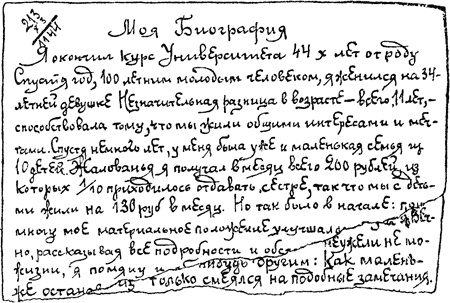 213
x3
1144
Моя Биография
Я окончил курс Университета 44 х лет от роду
Спустя год, 100 летним молодым человеком, я женился на 34-
летней девушке Незначительная разница в возрасте — всего 11 лет, —
способствовала тому, что мы жили общими интересами и меч-
тами. Спустя немного лет, у меня была уже и маленькая семья из
10 детей. Жалованья я получал в месяц всего 200 рублей, из
которых 1/10 приходилось отдавать, сестре, так что мы с деть-
ми жили на 130 руб в месяц. Но так было в начале:
многу мое материальное положение улучшало
но, рассказывая все подробности и неужели не мо-
жизни, я помяну и нибудь другим: Как малень-
же только смеялся на подобные замечания.